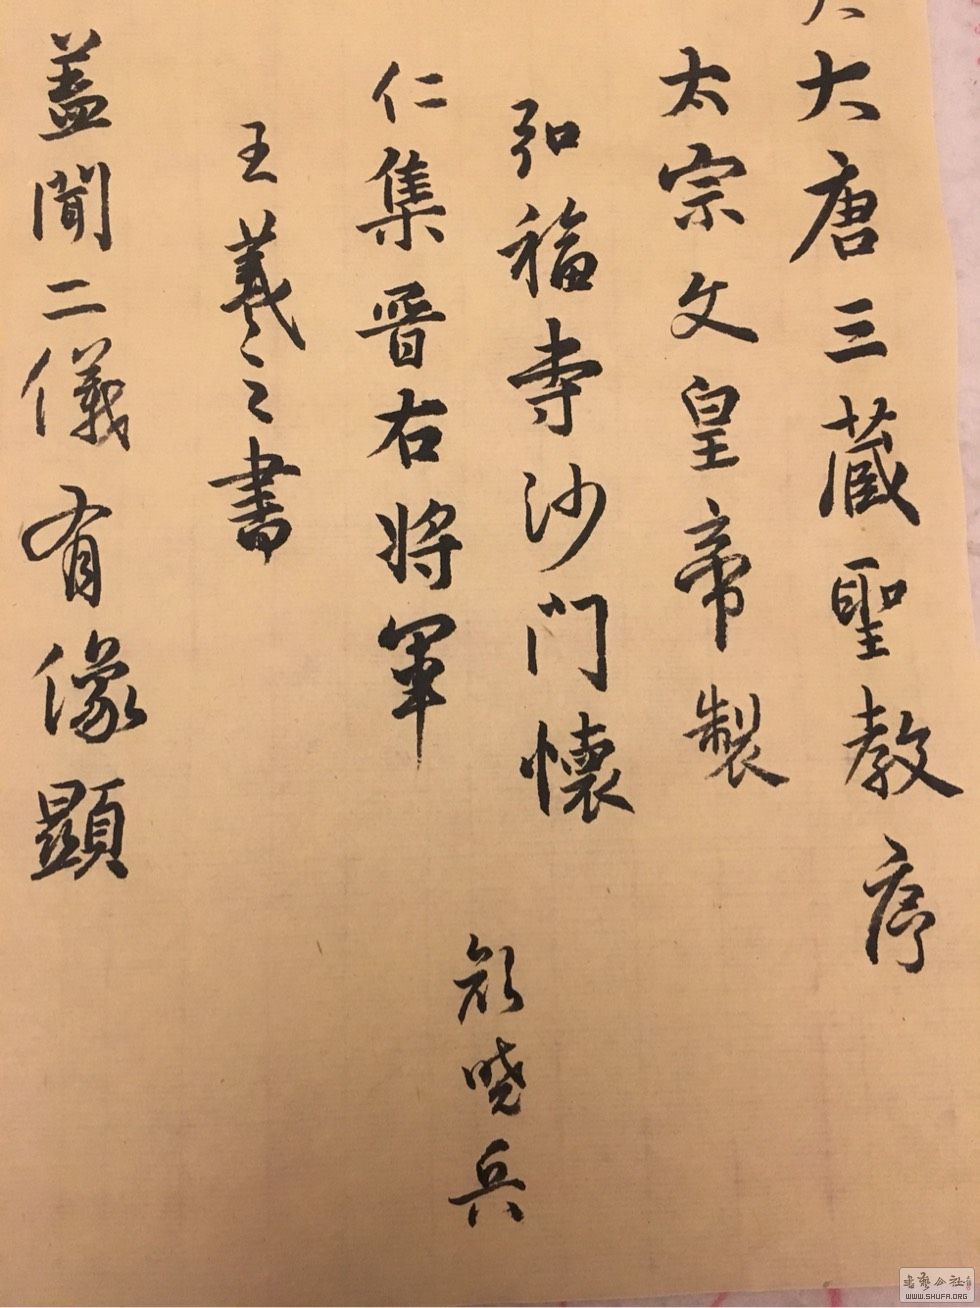 大大唐三藏聖教序
太宗文皇帝製
弘福寺沙門懷
仁集晉右將軍
王羲之書
蓋聞二儀有像顯
曉兵
WWW.SHUFA.ORG